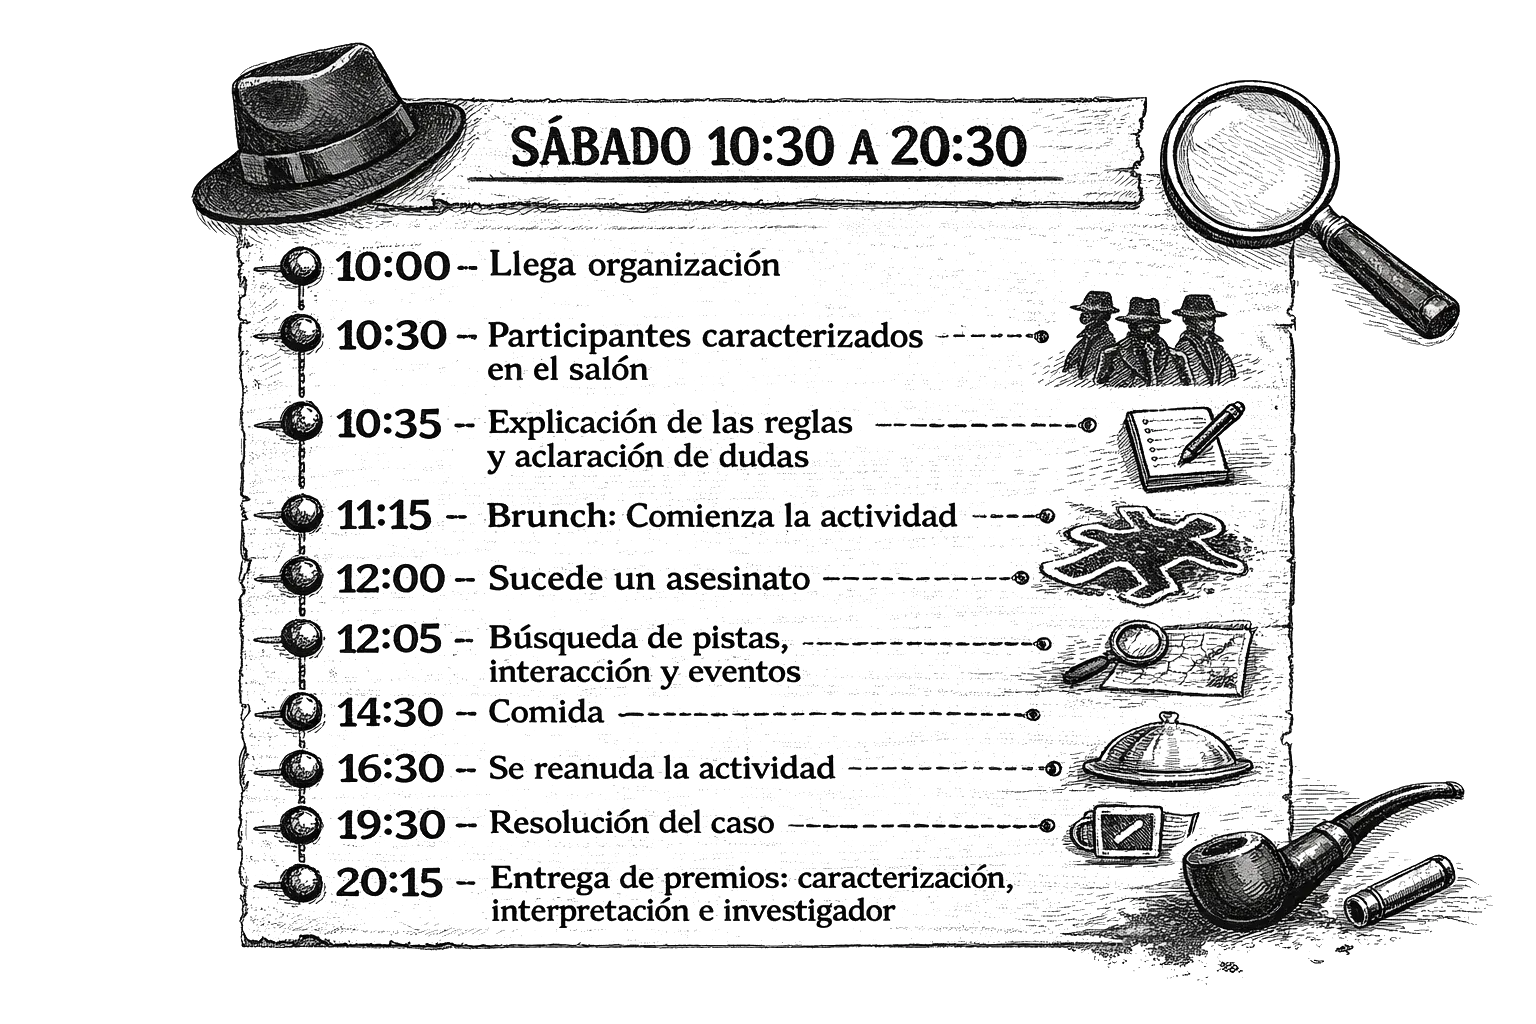 SÁBADO 10:30 A 20:30
10:00 – Llega organización
10:30 – Participantes caracterizados
en el salón
10:35 – Explicación de las reglas
y aclaración de dudas
11:15 – Brunch: Comienza la actividad
12:00 – Sucede un asesinato
12:05 – Búsqueda de pistas,
interacción y eventos
14:30 – Comida
16:30 – Se reanuda la actividad
19:30 – Resolución del caso
20:15 – Entrega de premios: caracterización,
interpretación e investigador